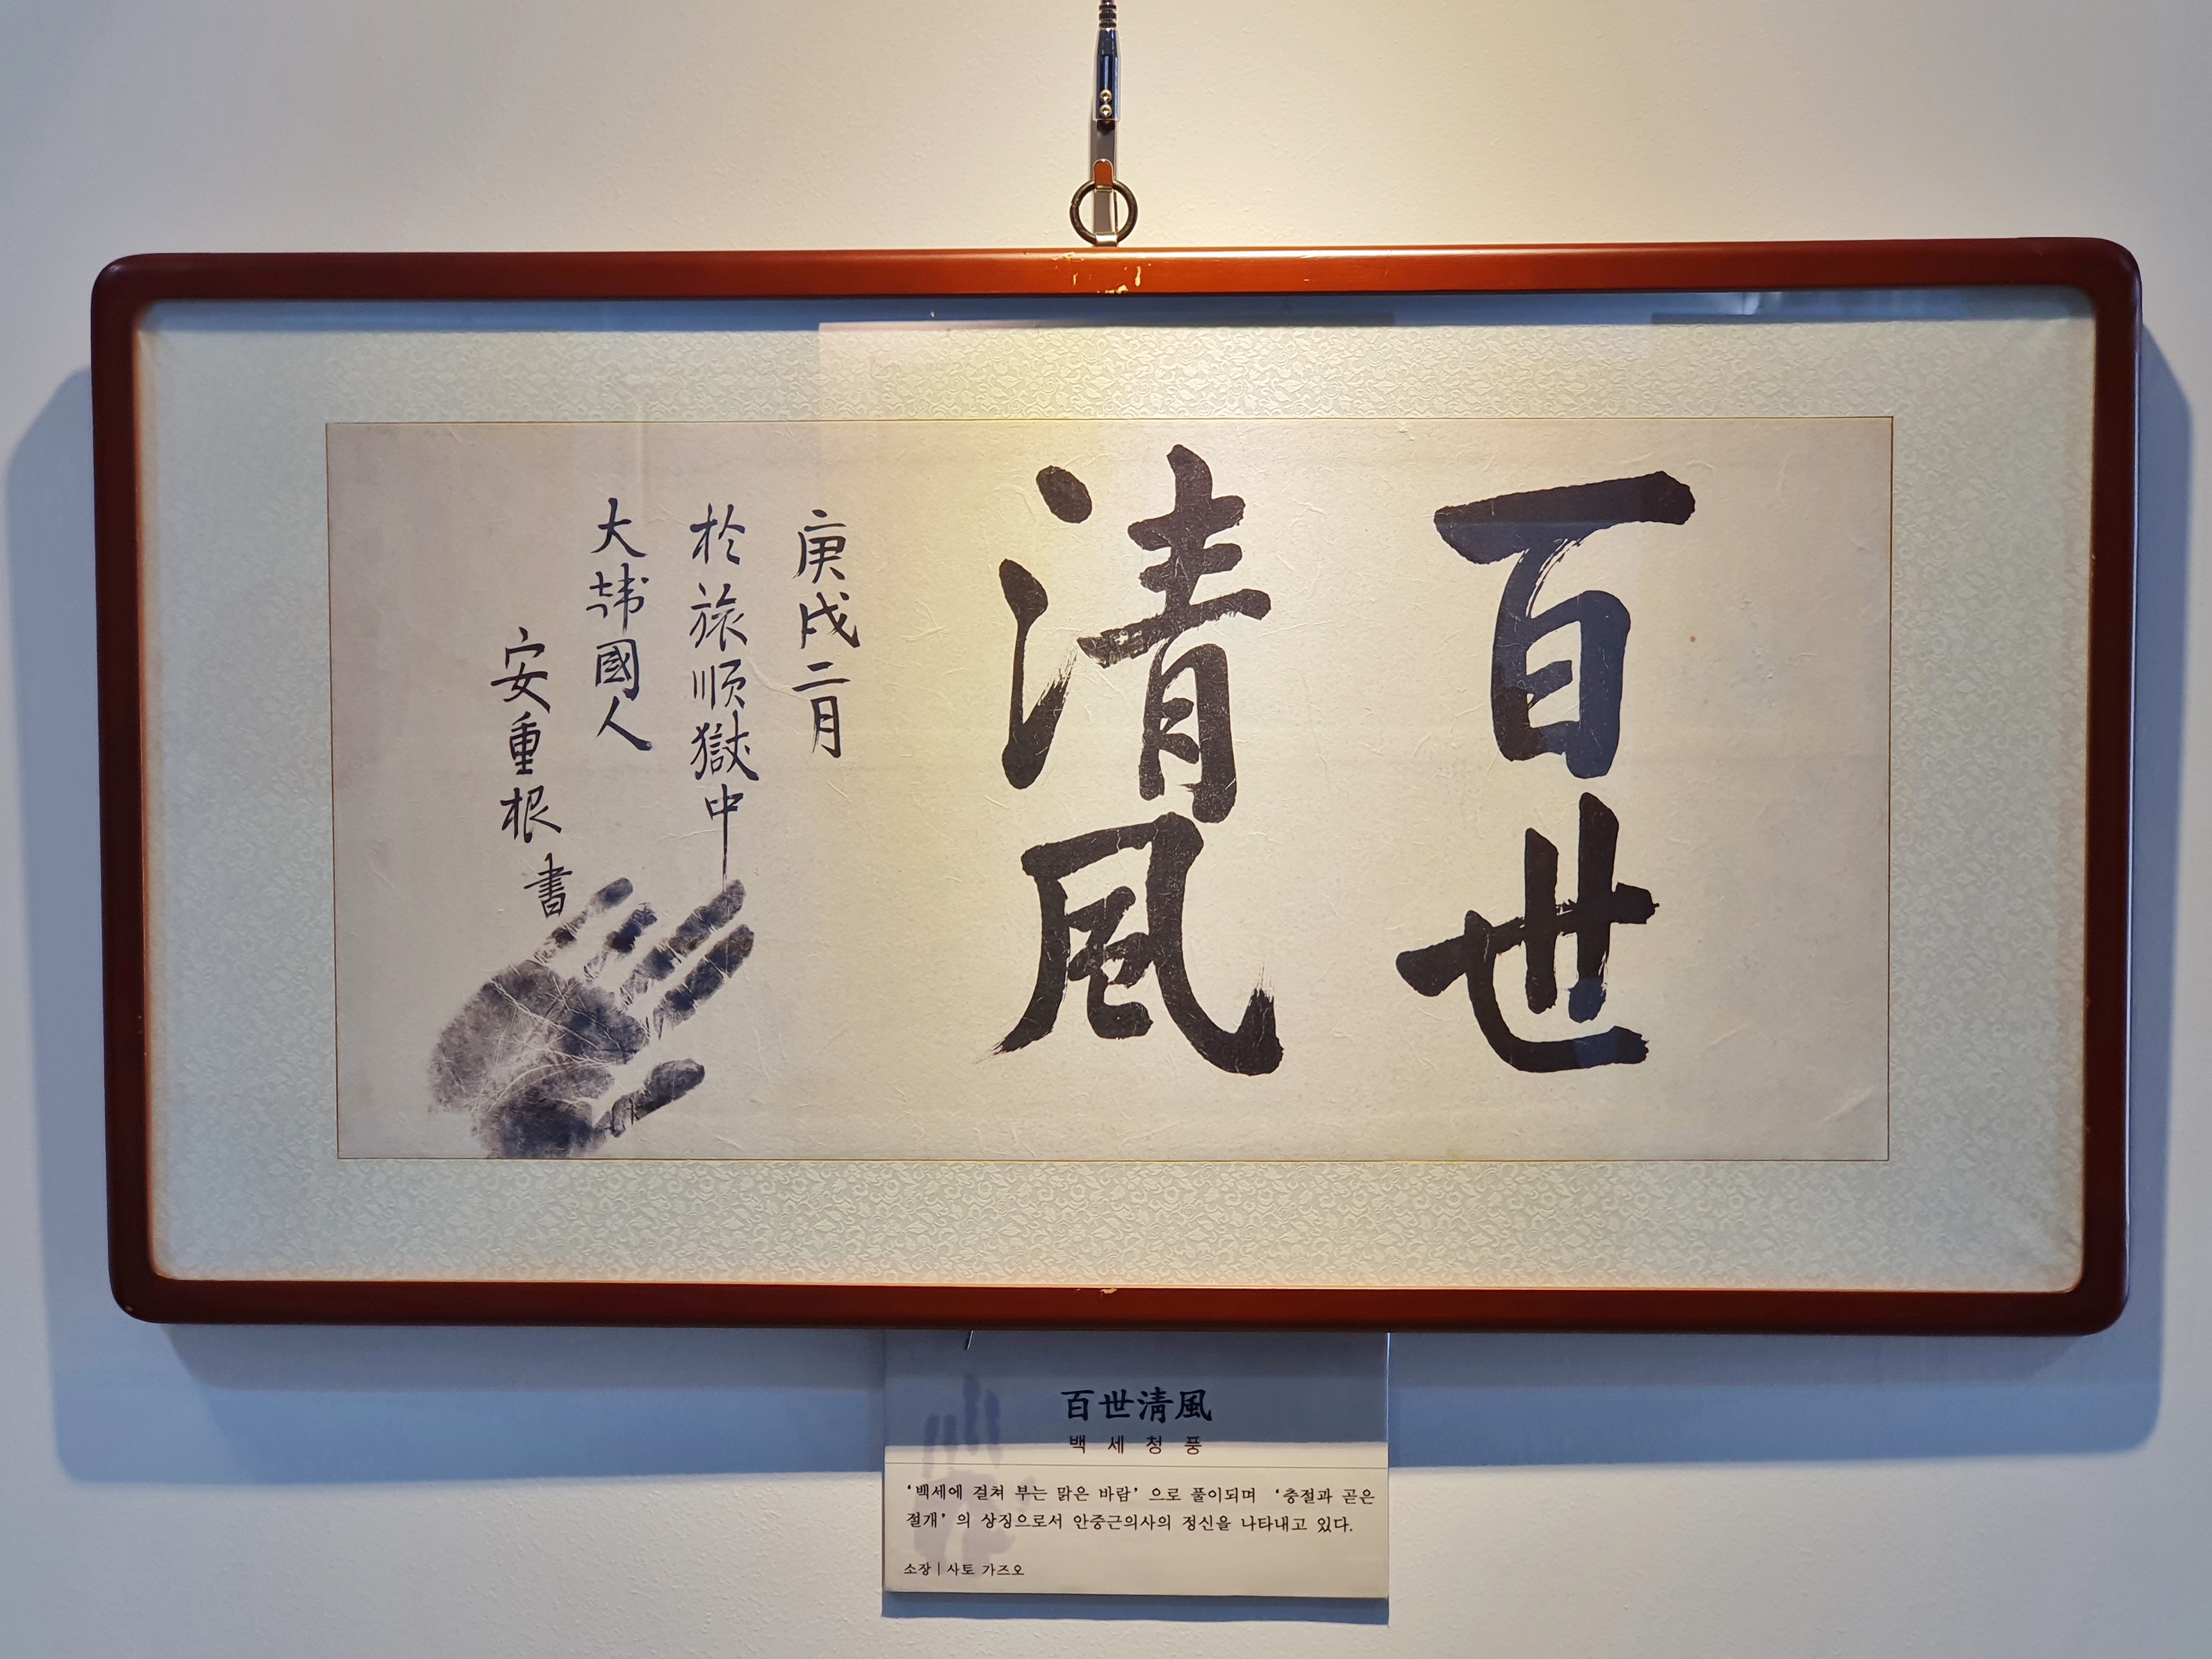 百世
清風
庚戌二月
於旅順獄中
大韓國人
安重根
書
百世淸風
백세청풍
‘백세에 걸쳐 부는 맑은 바람’ 으로 풀이되며 ‘충절과 곧은
절개’ 의 상징으로서 안중근의사의 정신을 나타내고 있다.
소장 | 사토 가즈오